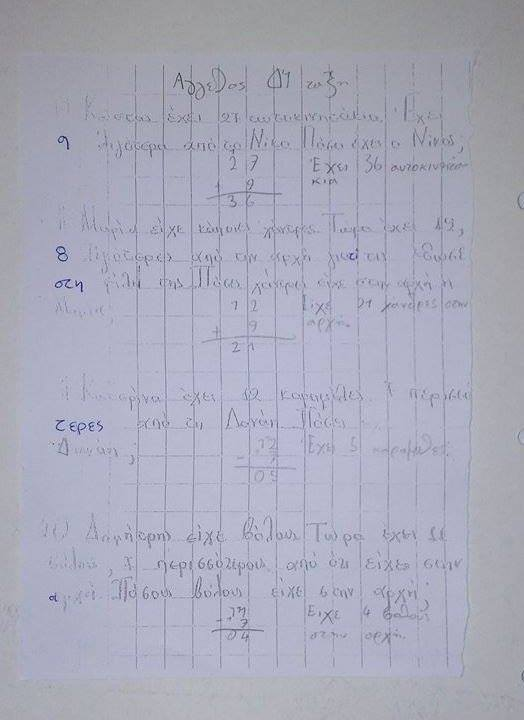 Άγγελος Δ'1 ταξη
Κώστας έχει 27 αυτοκινητάκια. Έχει
9 λιγότερα από το Νίκο Πόσα έχει ο Νίκος;
27 Έχει 36 αυτοκινητά
+ 9 κια
36
Η Μαρία είχε κάποιες χάντρες Τώρα έχει 12,
8 λιγότερες από την αρχή γιατί τις έδωσε
στη φίλη της Πόσες χάντρες είχε στην αρχή η
Μαρία;
12 Είχε 21 χάντρες στην
+ 9 αρχή.
21
Η Κατερίνα έχει 12 καραμέλες 7 περισσό
τερες από τη Δανάη Πόσες
Δανάη;
12 Έχει 5 καραμέλες.
- 7
05
Ο Δημήτρης είχε βόλους Τώρα έχει 11
βόλους, 7 περισσότερους από ότι είχε στην
αρχή Πόσους βόλους είχε στην αρχή;
11 Είχε 4 βόλους
- 7 στην αρχή.
04